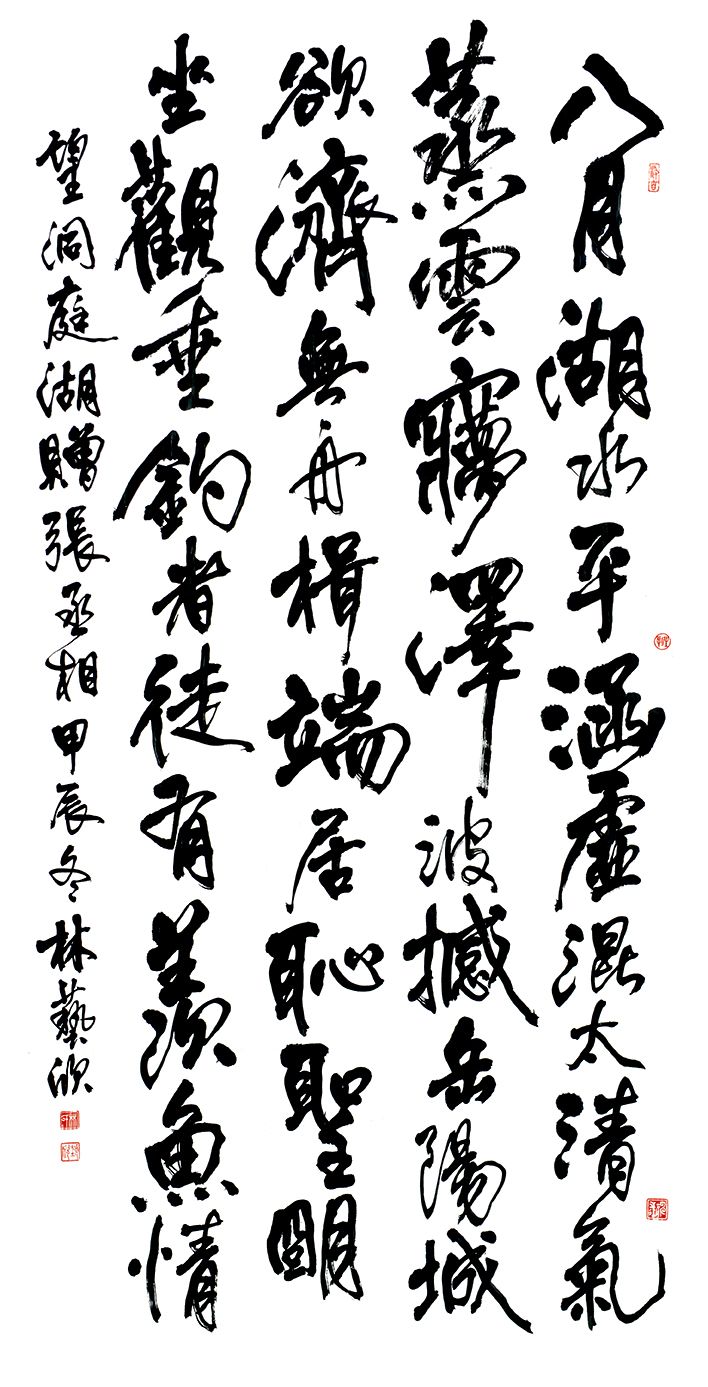 八月湖水平涵虛混太清氣
蒸雲夢澤波撼岳陽城
欲濟無舟楫端居恥聖明
坐觀垂釣者徒有羨魚情
望洞庭湖贈張丞相甲辰冬林藝欣